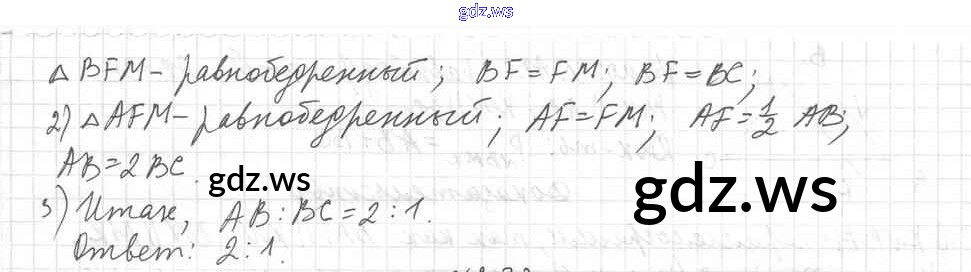 gdz.ws
Δ BFM - равнобедренный; BF = FM; BF = BC;
2) Δ AFM - равнобедренный; AF = FM; AF = 1/2 AB;
AB = 2 BC.
gdz.ws
gdz.ws
3) Итак, AB : BC = 2 : 1.
Ответ: 2 : 1.